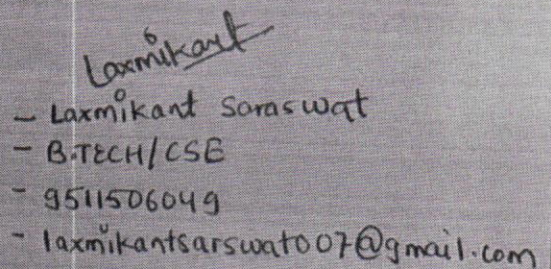 Laxmikant
- Laxmikant Saraswat
- B.TECH/CSE
- 9511506049
- laxmikantsarswat007@gmail.com